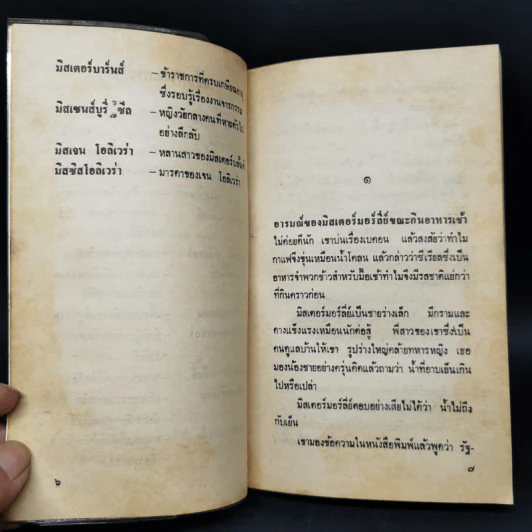 มิสเตอร์บาร์นส์ – ข้าราชการที่ครบเกษียณอายุ
ซึ่งรอบรู้เรื่องงานจารกรรม
มิสเซนส์บูรี่ ซีล – หญิงวัยกลางคนที่หายตัวไป
อย่างลึกลับ
มิสเจน โอลิเวร่า – หลานสาวของมิสเตอร์บลันท์
มิสซิสโอลิเวร่า – มารดาของเจน โอลิเวร่า
๖
๑
อารมณ์ของมิสเตอร์มอร์ลี่ย์ขณะกินอาหารเช้า
ไม่ค่อยดีนัก เขาบ่นเรื่องเบคอน แล้วสงสัยว่าทำไม
กาแฟจึงขุ่นเหมือนน้ำโคลน แล้วกล่าวว่าซีเรียลซึ่งเป็น
อาหารจำพวกข้าวสำหรับมื้อเช้าทำไมจึงมีรสชาติแย่กว่า
ที่กินคราวก่อน
มิสเตอร์มอร์ลี่ย์เป็นชายร่างเล็ก มีกรามและ
คางแข็งแรงเหมือนนักต่อสู้ พี่สาวของเขาซึ่งเป็น
คนดูแลบ้านให้เขา รูปร่างใหญ่คล้ายทหารหญิง เธอ
มองน้องชายอย่างครุ่นคิดแล้วถามว่า น้ำที่อาบเย็นเกิน
ไปหรือเปล่า
มิสเตอร์มอร์ลี่ย์ตอบอย่างเสียไม่ได้ว่า น้ำไม่ถึง
กับเย็น
เขามองข้อความในหนังสือพิมพ์แล้วพูดว่า รัฐ-
๗